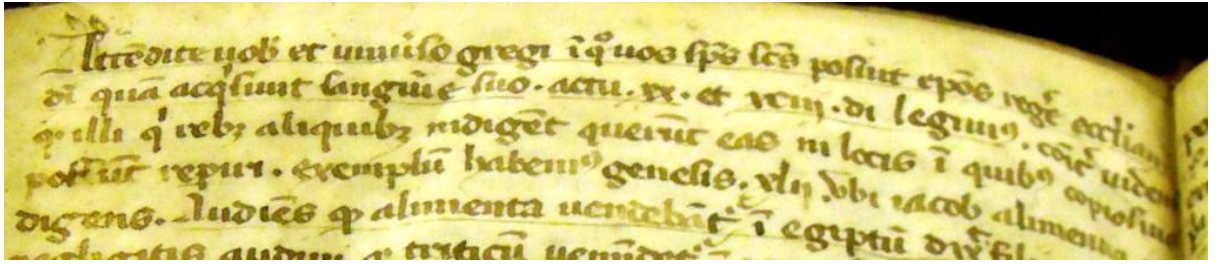 Attēdite uob et uniūso gregi ī qͦ uos sp̄s sc̄s posuit ep̄os reg̾e eccliam
di quā acqͥsiuit sanguīe suo. actu. xx. et xciij. di legimꝰ. coīt̾ uidem
ꝙ illi qͥ rebꝫ aliquibꝫ indigēt querūt eas in locis ī quibꝰ copiosius
possūt repiri. exemplū habemꝰ genesis. xlij vbi iacob alimenta
digens. Audiēs ꝙ alimenta uendebāt̾ ī egiptū dix̾ fil
audiui ꝙ triticū uenūdet̾